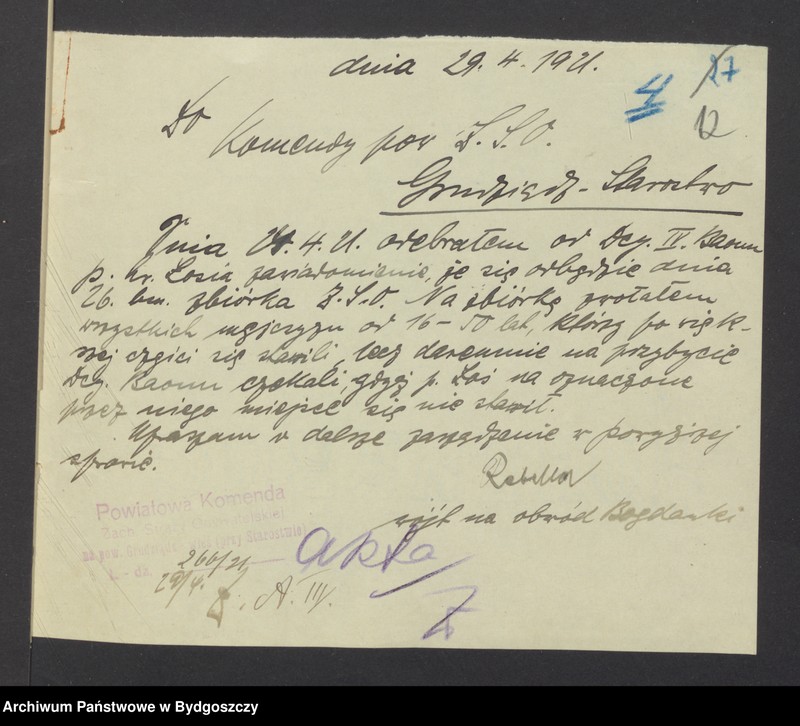 dnia 29.4.1921.
4
27
12
Do
Komendy pow Z.S.O.
Grudziądz - Starostwo
Dnia 24.4.21. odebrałem od Dcy. IV. Baonu
p. Łosia zawiadomienie, że się odbędzie dnia
26. bm. zbiórka Z.S.O. Na zbiórkę zwołałem
wszystkich mężczyzn od 16-50 lat, którzy po więk-
szej części się stawili, lecz daremnie na przybycie
Dcy. Baonu czekali, gdyż p. Łoś na oznaczone
przez niego miejsce się nie stawił.
Upraszam o dalsze zarządzenie w powyższej
sprawie.
wójt na obwód Bogdanki
Powiatowa Komenda
Zach. Straży Obywatelskiej
L. dz. 266/21
29/4.
A. III.
Akta
Archiwum Państwowe w Bydgoszczy